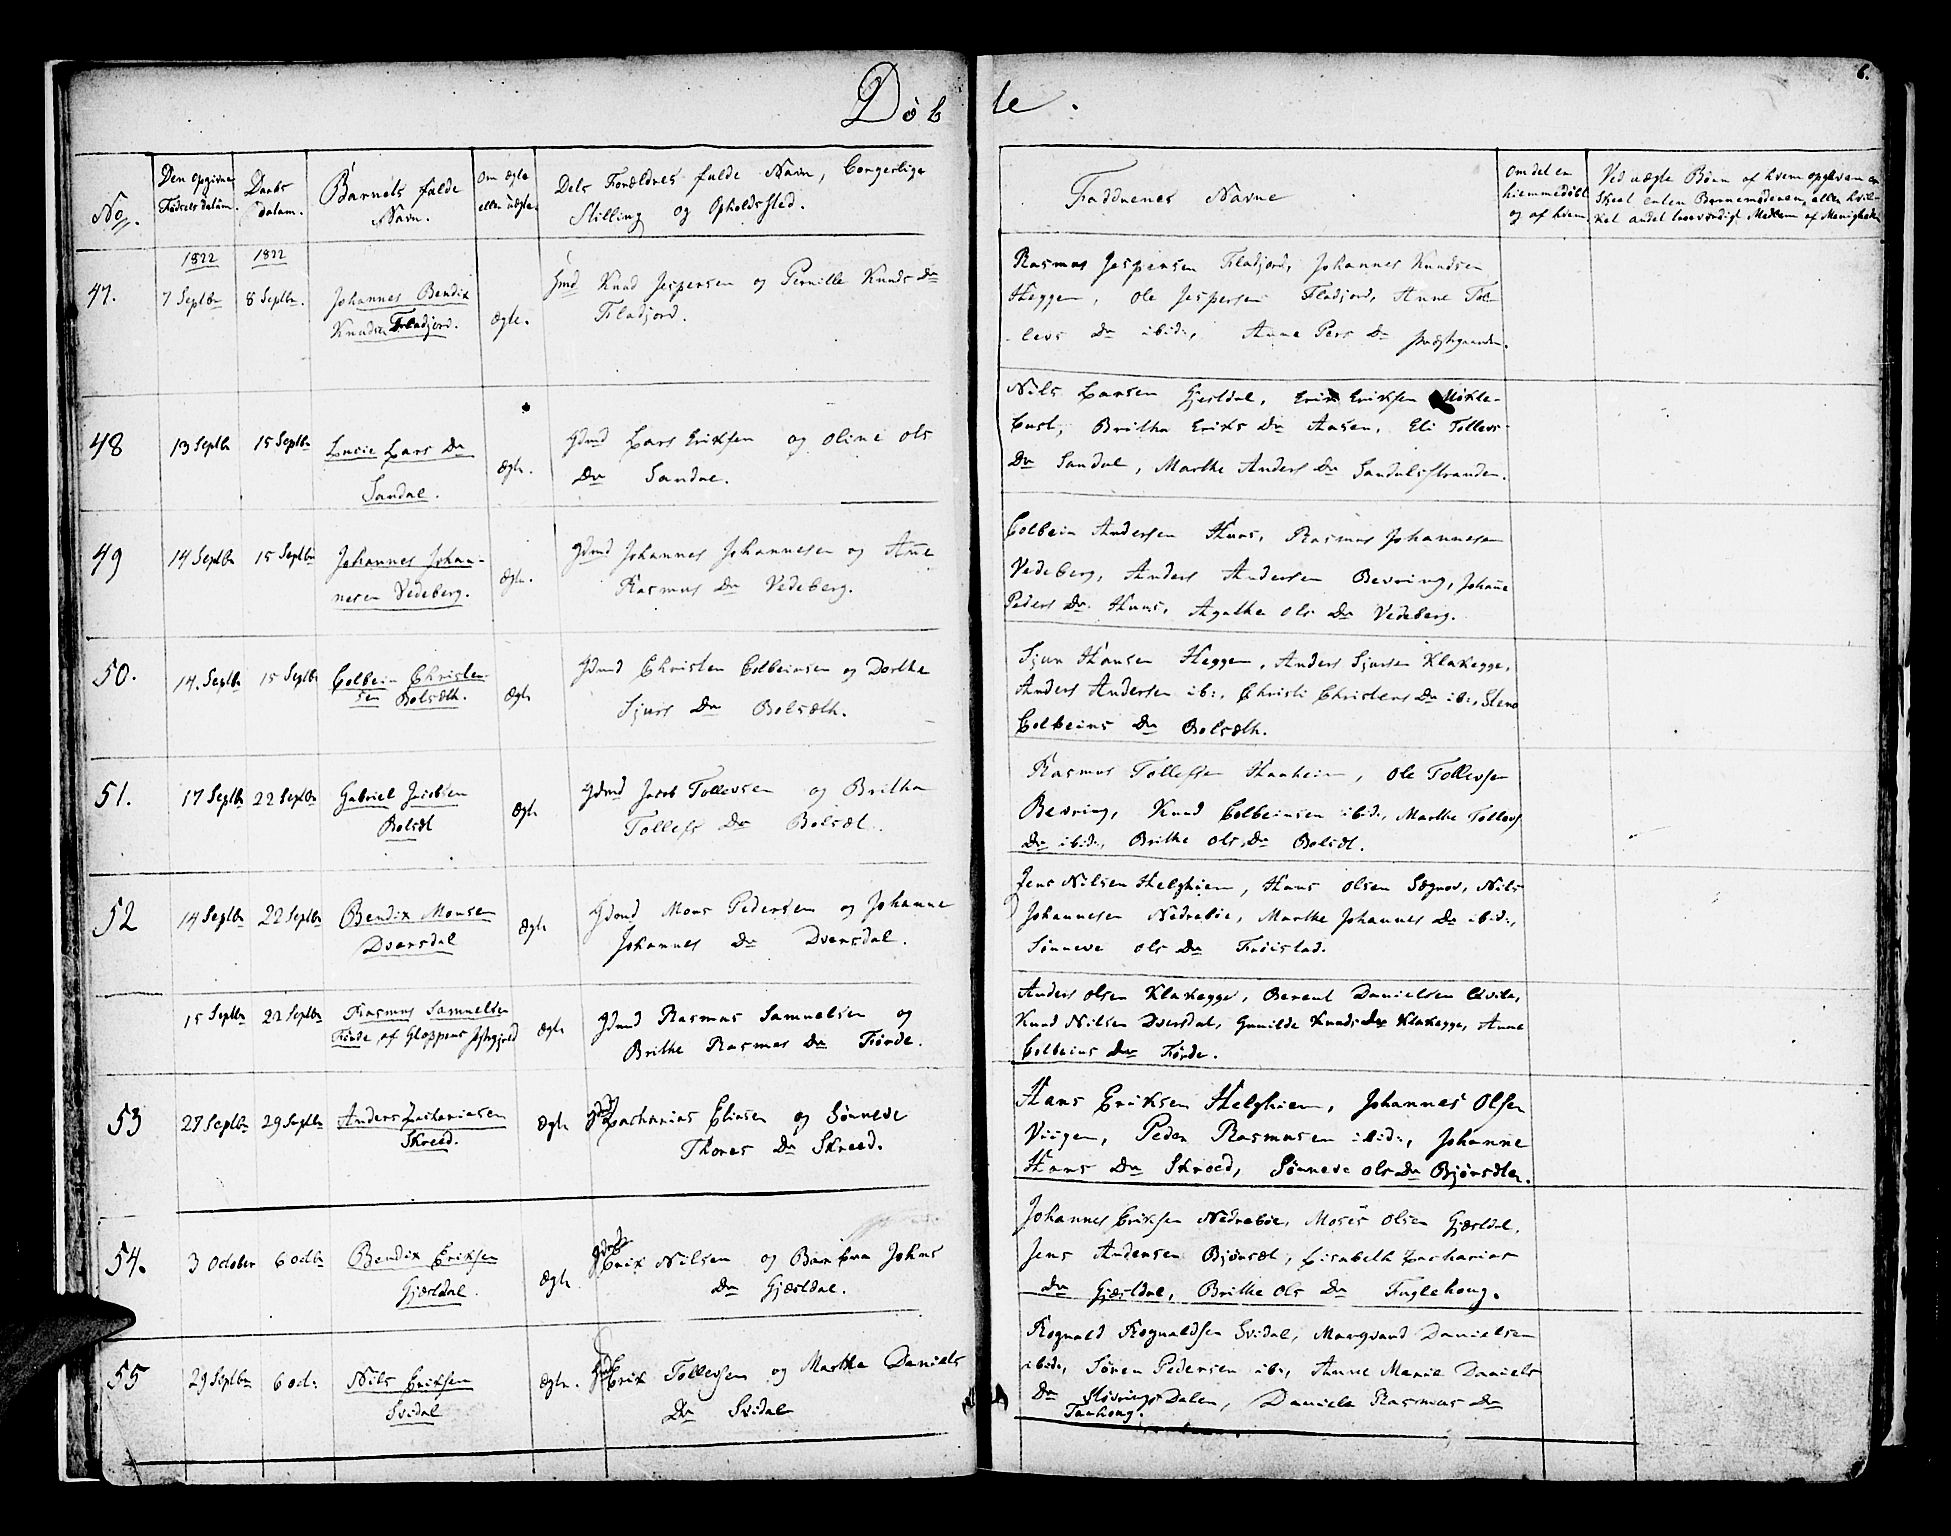 6.
Døbte.
No.
Den opgivne Fødsels datum.
Daabs datum.
Barnets fulde Navn.
Om ægte eller uægte.
Dets Forældres fulde Navn, borgerlige Stilling og Opholdssted.
Faddernes Navne
Om det er hiemmedøbt og af hvem
Ved uægte Børn af hvem opgivem er skeet enten Barnemoderen, eller hvilket andet troeværdigt Medlem af Menigheden
1822
1822
47.
7 Septbr
8 Septbr.
Johannes Bendix
Knudsen Fladjord.
Ægte.
Hmd Knud Jespersen og Pernille Knuds Dr
Fladjord.
Rasmus Jespersen Fladjord, Johannes Knudsen
Heggen, Ole Jespersen Fladjord, Anne Tol-
levs Dr ibid:, Anne Pers Dr Præstgaarden.
48
13 Septbr
15 Septbr
Lucie Lars Dr
Sandal.
Ægte.
Gdmd Lars Eriksen og Oline Ols
Dr Sandal.
Nils Larsen Gjesdal, Erik Eriksen Møkle-
bust, Britha Eriks Dr Aasen, Eli Tollevs
Dr Sandal, Marthe Anders Dr Sandalsstranden.
49
14 Septbr
15 Septbr
Johannes Johan-
nesen Vedeberg.
Ægte.
Gdmd Johannes Johannesen og Anne
Rasmus Dr Vedeberg.
Colbein Andersen Huus, Rasmus Johannesen
Vedeberg, Anders Andersen Bevring, Johane
Peders Dr. Huus, Agathe Ols Dr Vedeberg.
50.
14. Septbr
15 Septbr
Colbein Christen-
sen Bolsæth.
Ægte
Gdmd Christen Colbeinsen og Dorthe
Sjurs Dr Bolsæth.
Sjur Hansen Heggen, Anders Sjursen Klakegge,
Anders Andersen ib:, Christi Christens Dr ib:, Steno
Colbeins Dr Bolsæth.
51.
17 Septbr
22 Septbr
Gabriel Jacobsen
Bolsæt
Ægte
Gdmd Jacob Tollevsen og Britha
Tollefs Dr Bolsæt.
Rasmus Tollefsen Haaheim, Ole Tollevsen
Bevring, Knud Colbeinsen ibid:, Marthe Tollevs
Dr ibid:, Brithe Ols Dr Bolsæt.
52
14 Septbr
22 Septbr
Bendix Monsen
Dvergsdal
Ægte
Gdmd Mons Pedersen og Johanne
Johannes Dr Dvergsdal.
Jens Nilsen Helghiem, Hans Olsen Søgnes, Nils
Johannesen Nedrebøe, Marthe Johannes Dr ibid:,
Sønneve Ols Dr Frøistad.
15 Septbr
22 Septbr
Rasmus Samuelsen
Førde af Gloppens Præstegjeld
Ægte
Gdmd Rasmus Samuelsen og
Brithe Rasmus Dr Førde.
Anders Olsen Klakegge, Berent Danielsen Qvile,
Knud Nilsen Dversdal, Gunilde Knuds Dr Klakegge, Anne
Colbeins Dr Førde.
53
27 Septbr
29 Septbr
Anders Zachariasen
Skreed.
Ægte
Gdmd Zacharias Eliasen og Sønneve
Thores Dr Skreed.
Hans Eriksen Helghiem, Johannes Olsen
Viigen, Peder Rasmusen ibid:, Johanne
Hans Dr Skreed, Sønneve Ols Dr Bjørsæter.
54.
3 October
6 Octbr
Bendix Eriksen
Gjæsdal.
Ægte
Gdmd Erik Nilsen og Barbra Johns
Dr Gjæsdal.
Johannes Eriksen Nedrebøe, Moses Olsen Gjæsdal,
Jens Andersen Bjørsæt, Lisabeth Zacharias
Dr Gjæsdal, Brithe Ols Dr Fuglehoug.
55
29 Septbr
6 Oct:
Nils Eriksen
Svidal
Ægte.
Erik Tollevsen og Marthe Daniels
Dr Svidal
Rognald Rognaldsen Svidal, Marqvard Danielsen
ibid:, Søren Pedersen ib:, Anne Marie Daniels
Dr Støvrings Dalen, Daniele Rasmus Dr
Fanhoug.